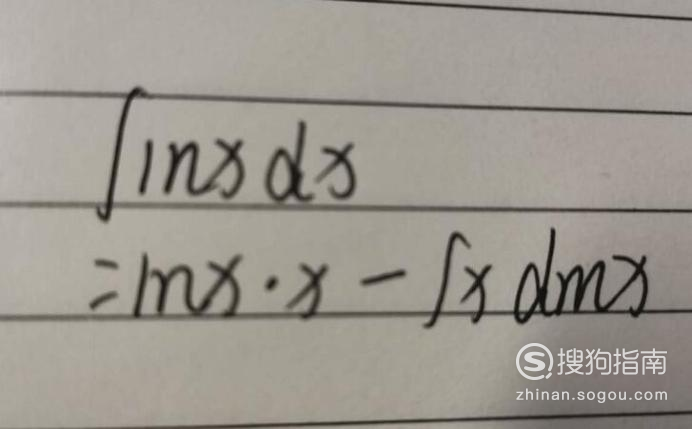 ∫lnx dx
=lnx·x-∫x dlnx
搜狗指南
zhinan.sogou.com